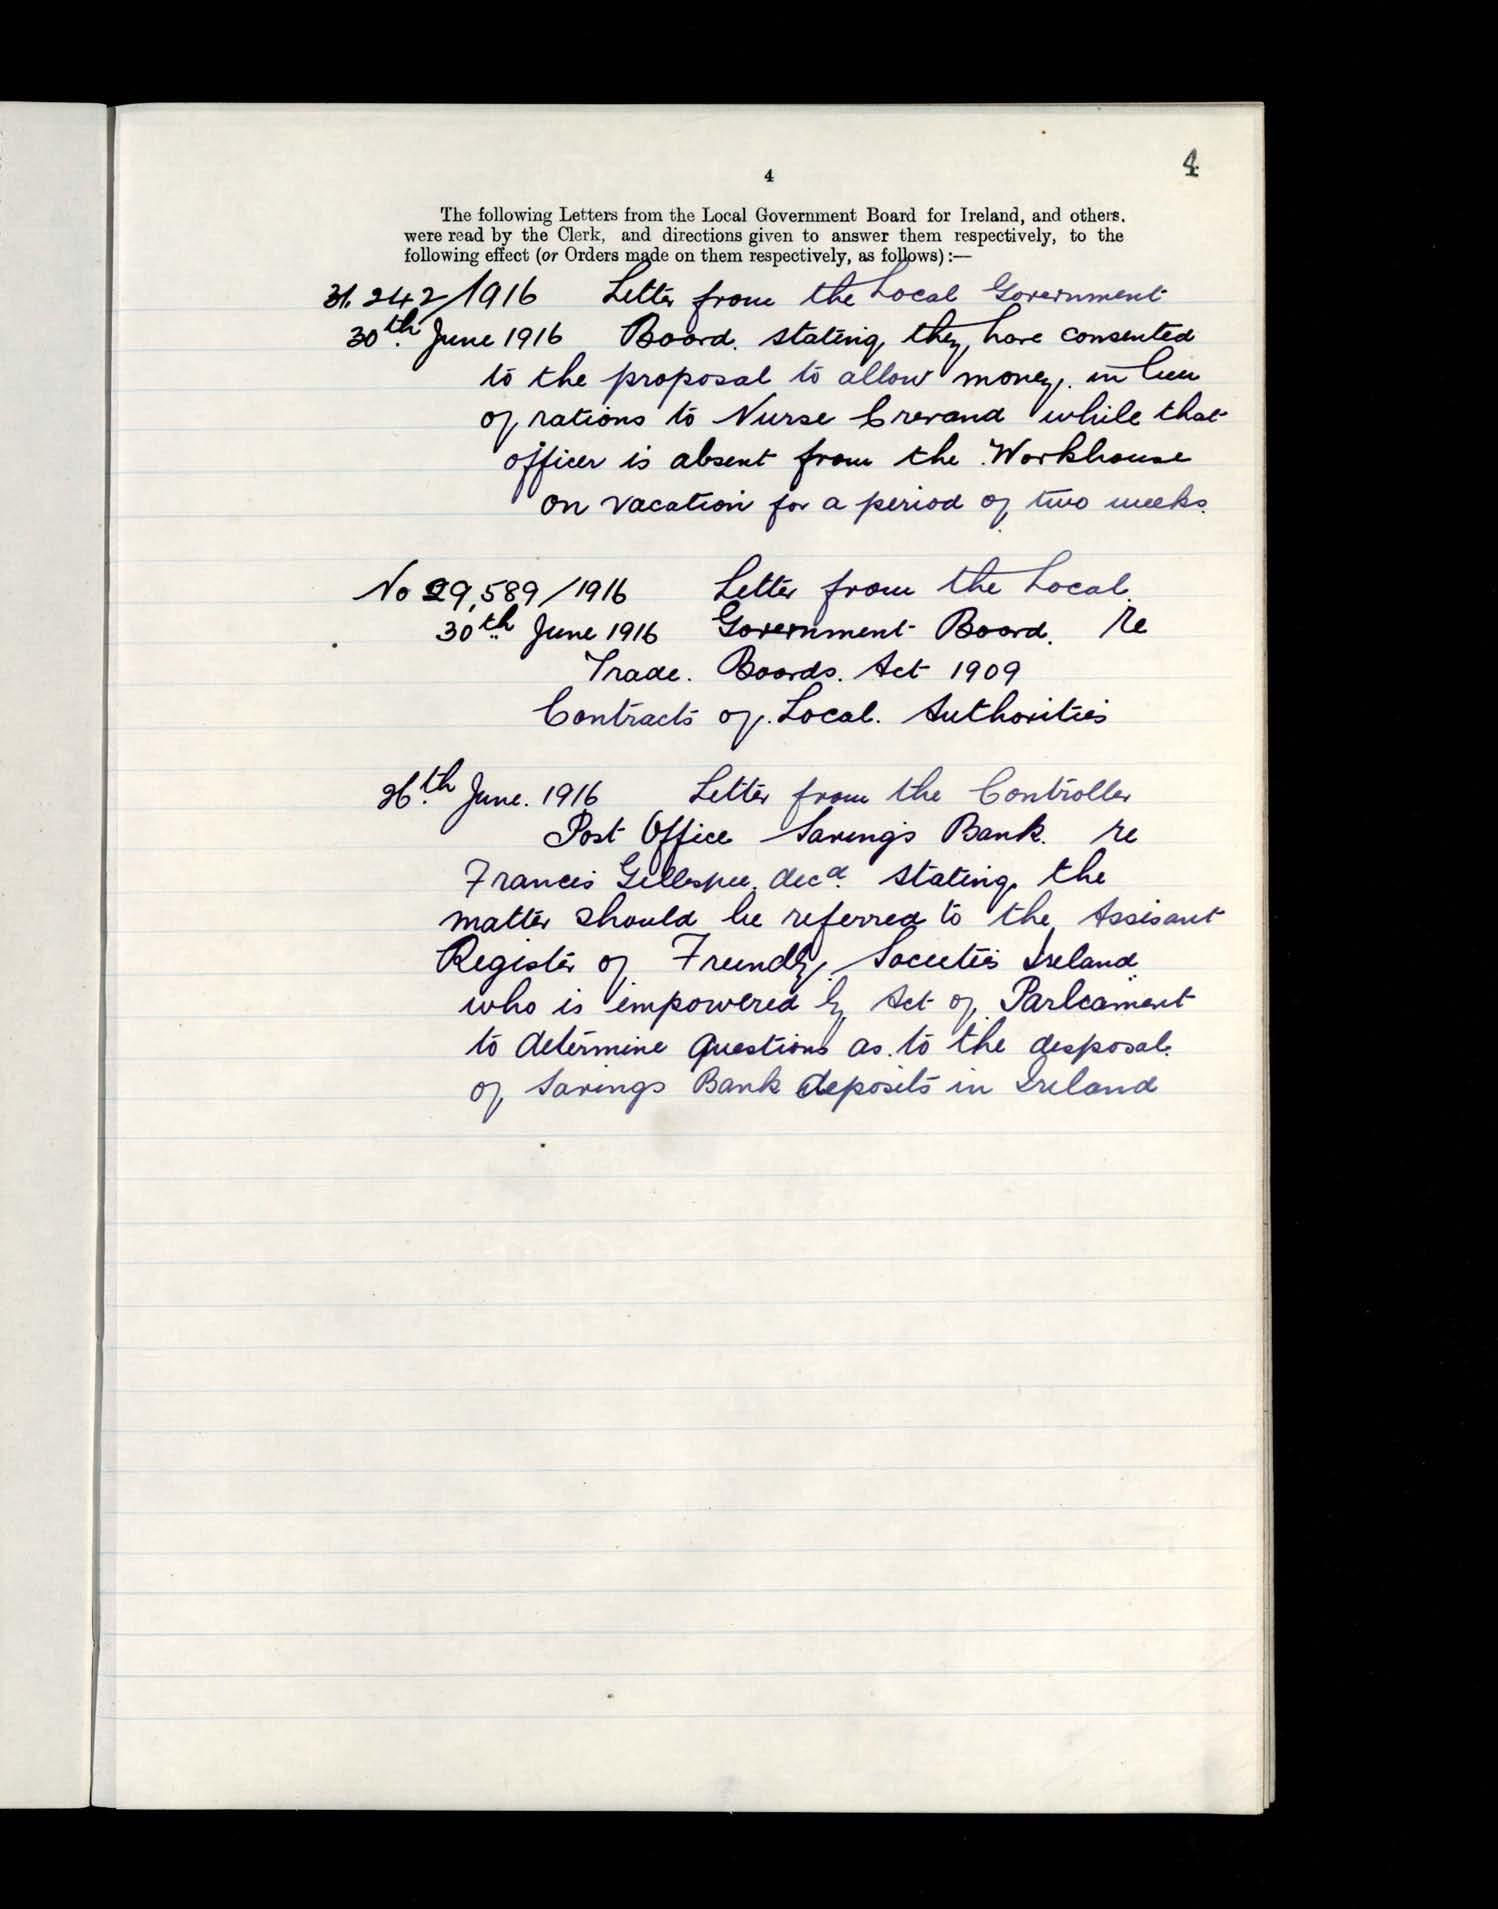 4
4
The following Letters from the Local Government Board for Ireland, and others.
were read by the Clerk, and directions given to answer them respectively, to the
following effect (or Orders made on them respectively, as follows):—
31.242/1916 Letter from the Local Government
30th June 1916 Board. stating they have consented
to the proposal to allow money. in lieu
of rations to Nurse Crevand while that
officer is absent from the Workhouse
on vacation for a period of two weeks.
No 29,589/1916 Letter from the Local.
30th June 1916 Government Board. Re
Trade. Boards. Act 1909
Contracts of. Local. Authorities
26th June. 1916 Letter from the Controller
Post Office Savings Bank. re
Francis Gillespie. decd. stating. the
matter should be referred to the Assisant
Register of Friendly Societies Ireland
who is empowered by Act of Parliament
to determine questions as. to the desposal.
of Savings Bank deposits in Ireland